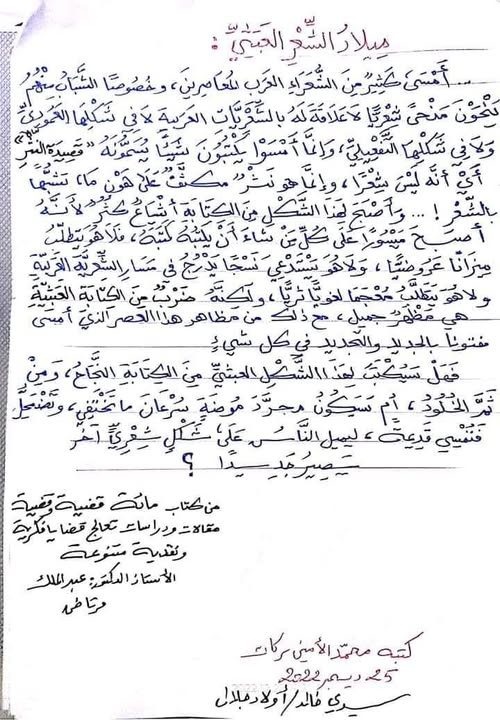 ميلادُ الشِّعْرِ العَبَثِيّ :
... أَمْسَى كَثِيرٌ مِنَ الشُّعَرَاءِ العَرَبِ المُعَاصِرِينَ، وخُصُوصًا الشَّبَابُ مِنْهُمْ
يَنْحُونَ مَنْحًى شِعْرِيًّا لاَ عَلاَقَةَ لَهُ بِالشِّعْرِيَّاتِ العَرَبِيَّةِ لاَ فِي شَكْلِهَا العَمُودِيِّ
وَلاَ فِي شَكْلِهَا التَّفْعِيلِيِّ، وَإِنَّمَا أَمْسَوْا يَكْتُبُونَ شَيْئًا يُسَمُّونَهُ "قصيدة النثر"
أَيْ أنَّهُ لَيْسَ شِعْرًا، وَإِنَّمَا هو نَثْرٌ مكثَّفٌ عَلَى هَوْنٍ مَا، تَشَبُّهًا
بالشِّعْرِ !... وَأَصْبَحَ لِهَذَا الشَّكْلِ مِنَ الكِتَابَةِ أَشْيَاعٌ كُثُرٌ لأنَّهُ
أَصْبَحَ مَيْسُورًا عَلَى كُلِّ مَنْ شَاءَ أَنْ يَكْتُبَهُ كَتَبَهُ، فَلاَ هُوَ يَتَطَلَّبُ
مِيزَانًا عَرُوضِيًّا، وَلاَ هُوَ يَسْتَدْعِي نَسْجًا يَدْرُجُ فِي مَسَارِ الشِّعْرِيَّةِ العَرَبِيَّةِ
ولا هو يَتَطَلَّبُ مُعْجَمًا لُغَوِيًّا ثَرِيًّا، ولَكِنَّهُ ضَرْبٌ مِنَ الكِتَابَةِ العَبَثِيَّةِ
هِيَ مَظْهَرٌ جميل، مع ذلك من مظاهر هذا العصر الذي أمسى
مفتونا بالجديد والتجديد في كل شيءٍ
فَهَلْ سَيُكْتَبُ لِهَذَا الشَّكْلِ العبثيِّ مِنَ الكِتَابَةِ النَّجَاحُ، وَمِنْ
ثَمَّ الخُلُودُ، أم سَتَكُونُ مجرَّدَ مُوضَةٍ سُرْعَانَ مَا تَخْتَفِي، وَتَضْمَحِلّ
فَتُمْسِي قَدِيمَةً، لِيَمِيلَ النَّاسُ عَلَى شَكْلٍ شِعْرِيٍّ آخَرَ
يَصِيرُ جَدِيدًا ؟
من كتاب مائة قضية وقضية
مقالات ودراسات تعالج قضايا فكرية
ونقدية متنوعة
الأستاذ الدكتور: عبد الملك
مرتاض
كتبه محمّد الأمين بركات
25 ديسمبر 2022
سيدي خالد/أولاد جلال